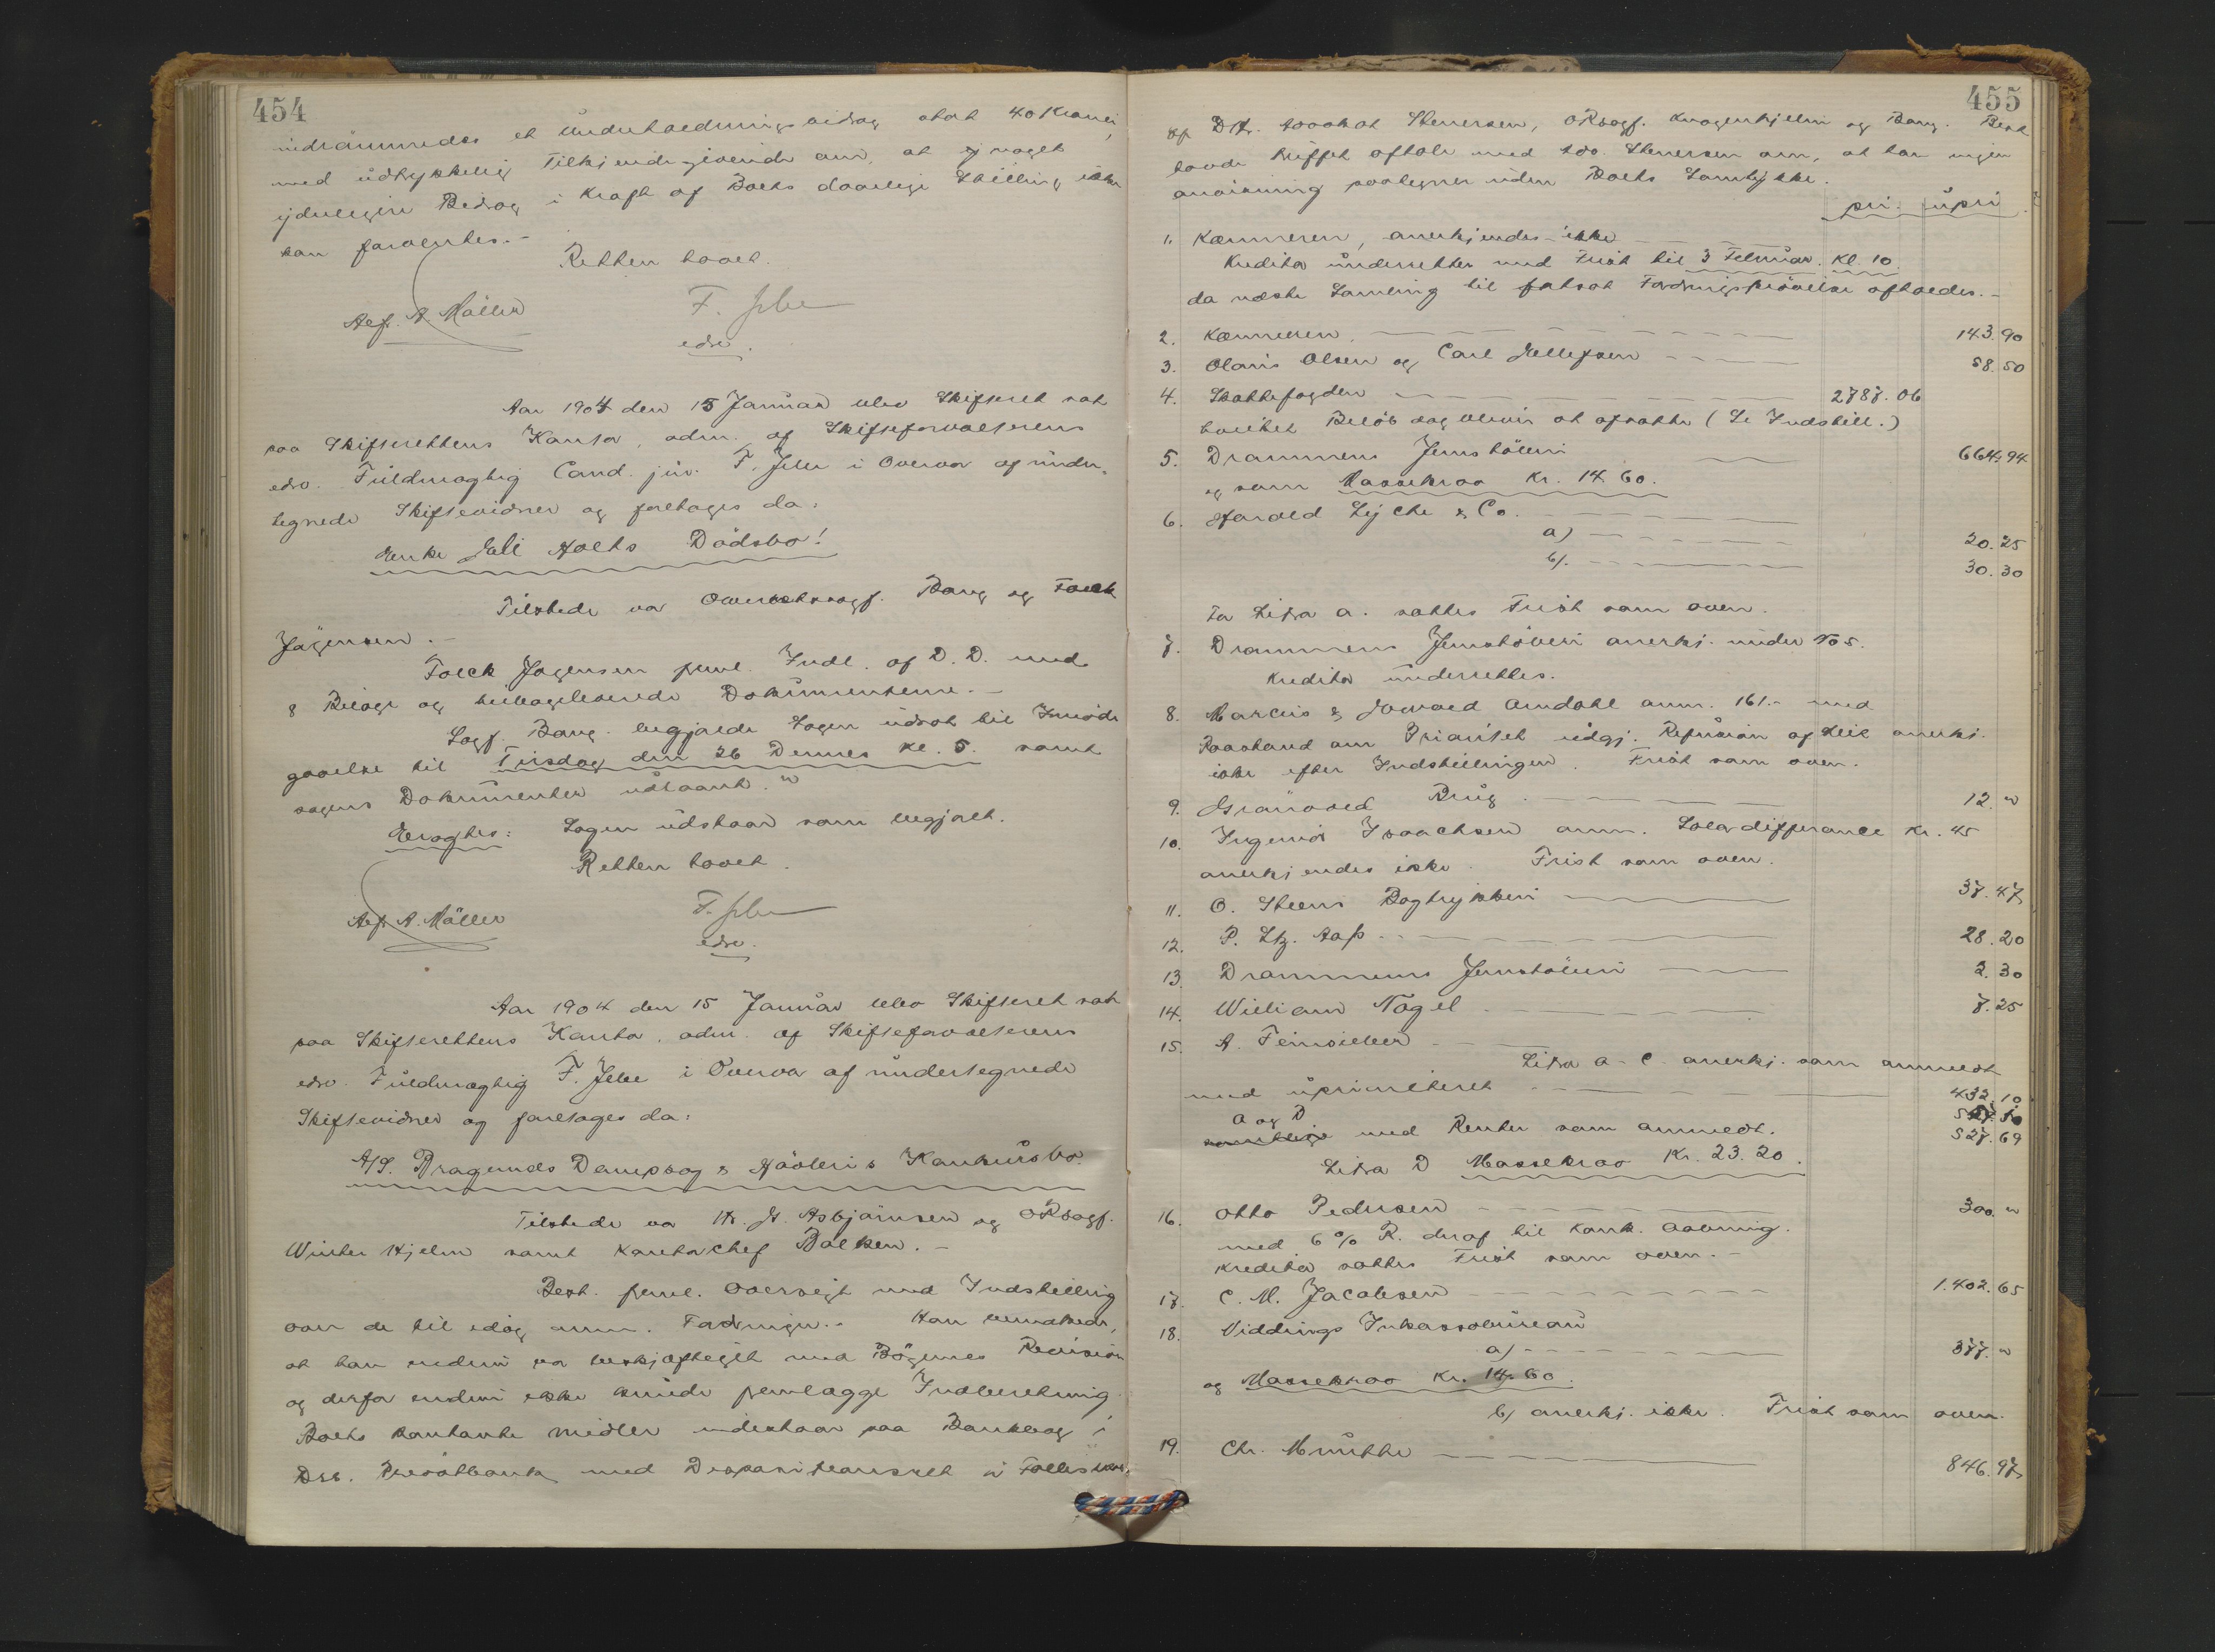 454
indrömmedes et Underholdningsbidrag stort 40 Kroner,
med udtrykkelig Tilkjendegivende om, at noget
yderligere Bidrag i Kraft af Boets daarlige Stilling ikke
kan forventes.-
Retten hævet.
Alf. A. Möller F. Jebe
edsv.
Aar 1904 den 15 Januar blev Skifteret sat
paa Skifterettens Kontor, adm. af Skifteforvalterens
edsv. Fuldmægtig Cand. jur. F. Jebe i Overvær af under-
tegnede Skiftevidner og foretoges da:
Enke Juli Holts Dödsbo!
Tilstede var Overretssagf. Bang og Falck
Jörgensen.-
Falck Jörgensen freml. Indl. af D. D. med
8 Bilage og tilbageleverede Dokumenterne.-
Sagf. Bang begjærte Sagen udsat til Imöde-
gaaelse til Tirsdag den 26 Dennes Kl. 5. samt
sagens Dokumenter udlaant."
Eragtes: Sagen udstaar som begjært.
Retten hævet.
Alf. A. Möller F. Jebe
edsv.
Aar 1904 den 15 Januar blev Skifteret sat
paa Skifterettens Kontor, adm. af Skifteforvalterens
edsv. Fuldmægtig F. Jebe i Overvær af undertegnede
Skiftevidner og foretoges da:
A/S. Bragernes Dampsag & Hövleris Konkursbo.
Tilstede var Hr. H. Asbjörnsen og ORsagf.
Winter Hjelm samt Kontorchef Balken.-
Best. freml. Oversigt med Indstilling
over de til idag anm. Fordringer.- Han bemærkede,
at han endnu var beskjæftiget med Bögernes Revision
og derfor endnu ikke kunde fremlægge Indberetning
Boets kontante Midler indestaar paa Bankbog i
Drs. Privatbank med Dispositionsret i Fællesskab
455
af D'Hr. Advokat Stenersen, ORsagf. Knagenhjelm og Bang. Best
havde truffet aftale med Adv. Stenersen om, at han ingen
anvisning paategner uden Boets Samtykke.
pri. upri.
1. Kæmneren, anerkjendes ikke
Kreditor underrettes med Frist til 3 Februar. Kl. 10.
da næste Samling til fortsat Fordringsprövelse afholdes.-
2. Kæmneren, 143.90
3. Olaus Olsen og Carl Jellefsen 58.50
4. Skattefogden 2787.06
hvilket Belöb dog bliver at afsætte (Se Indstill.)
5. Drammens Jernstöberi 664.94
og som Massekrav Kr. 14.60.
6. Harald Lyche & Co.
a) 20.25
b). 30.30
For Litra a. sættes Frist som oven.
7. Drammens Jernstöberi anerkj. under No 5.
Kreditor underrettes.
8. Marcus & Edvard Omdahl anm. 161.- med
Paastand om Prioritet udgj. Refusion af Leie anerkj.
ikke efter Indstillingen. Frist som oven.
9. Grönvold Brug. 12."
10. Ingeniör Isaachsen anm. Saldodifferance Kr. 45
anerkjendes ikke. Frist som oven.
11. O. Steens Bogtrykkeri 37.47
12. P. Ltz. Aass. 28.20
13. Drammens Jernstöberi 2.30
14. William Nagel 7.25
15. A. Feinsilber
Litra a-c anerkj. som anmeldt
med uprioriteret 432.10
A og D
samtlige med Renter som anmeldt. 527.69
Litra D Massekrav Kr. 23.20.
16. Otto Pedersen 300."
med 6 % R. deraf til Konk. Aabning.
Kreditor sættes Frist som oven.-
17. C. M. Jacobsen 1.402.65
18. Viddings Inkassobureau
a) 377."
og Massekrav Kr. 14.60.
b) anerkj. ikke. Frist som oven.
19. Chr. Mniütte 846.97